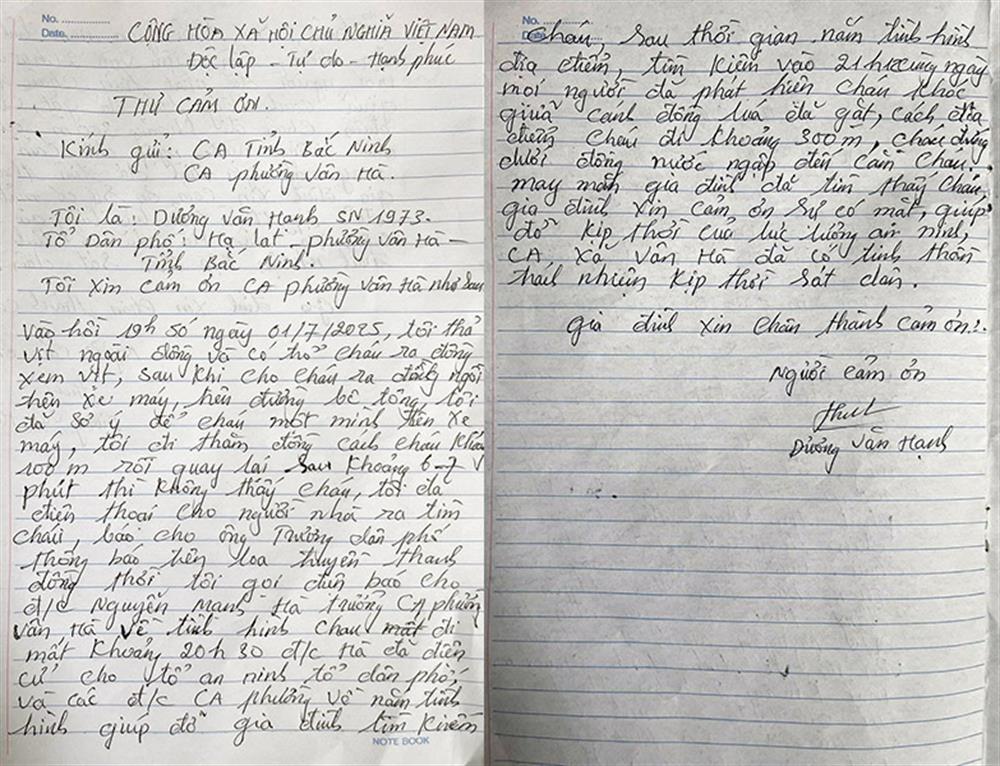 No. ..................
Date. ..................
CỘNG HÒA XÃ HỘI CHỦ NGHĨA VIỆT NAM
Độc lập - Tự do - Hạnh phúc
THƯ CẢM ƠN.
Kính gửi: CA Tỉnh Bắc Ninh
CA phường Vân Hà.
Tôi là: Dương Văn Hạnh SN 1973.
Tổ Dân phố: Hạ lát - phường Vân Hà -
Tỉnh Bắc Ninh.
Tôi xin cảm ơn CA phường Vân Hà như sau
Vào hồi 19h ngày 01/7/2025, tôi thả
vịt ngoài đồng và có chở cháu ra đồng
xem vịt, sau khi cho cháu ra đồng ngồi
trên xe máy, trên đường bê tông, tôi
đã sơ ý để cháu một mình trên xe
máy, tôi đi thăm đồng cách cháu khoảng
100 m rồi quay lại sau khoảng 6-7
phút thì không thấy cháu, tôi đã
điện thoại cho người nhà ra tìm
cháu, báo cho ông Trưởng dân phố
thông báo trên loa truyền thanh
đồng thời tôi gọi điện báo cho
đ/c Nguyễn Mạnh Hà trưởng CA phường
Vân Hà về tình hình cháu đi
mất khoảng 20h30 đ/c Hà đã điện
cử cho tổ an ninh tổ dân phố,
và các đ/c CA phường về nắm tình
hình giúp đỡ gia đình tìm kiếm
NOTE BOOK
No. ..................
Date.
cháu, sau thời gian nắm tình hình
địa điểm, tìm kiếm vào 21h cùng ngày
mọi người đã phát hiện cháu khóc
giữa cánh đồng lúa đã gặt, cách địa
điểm cháu đi khoảng 300m, cháu đứng
dưới đồng nước ngập đến cằm cháu.
may mắn gia đình đã tìm thấy cháu,
gia đình xin cảm ơn sự có mặt, giúp
đỡ kịp thời của lực lượng an ninh,
CA, xã Vân Hà đã có tinh thần
trách nhiệm kịp thời sát dân.
Gia đình xin chân thành cảm ơn.!.
Người cảm ơn
Dương Văn Hạnh